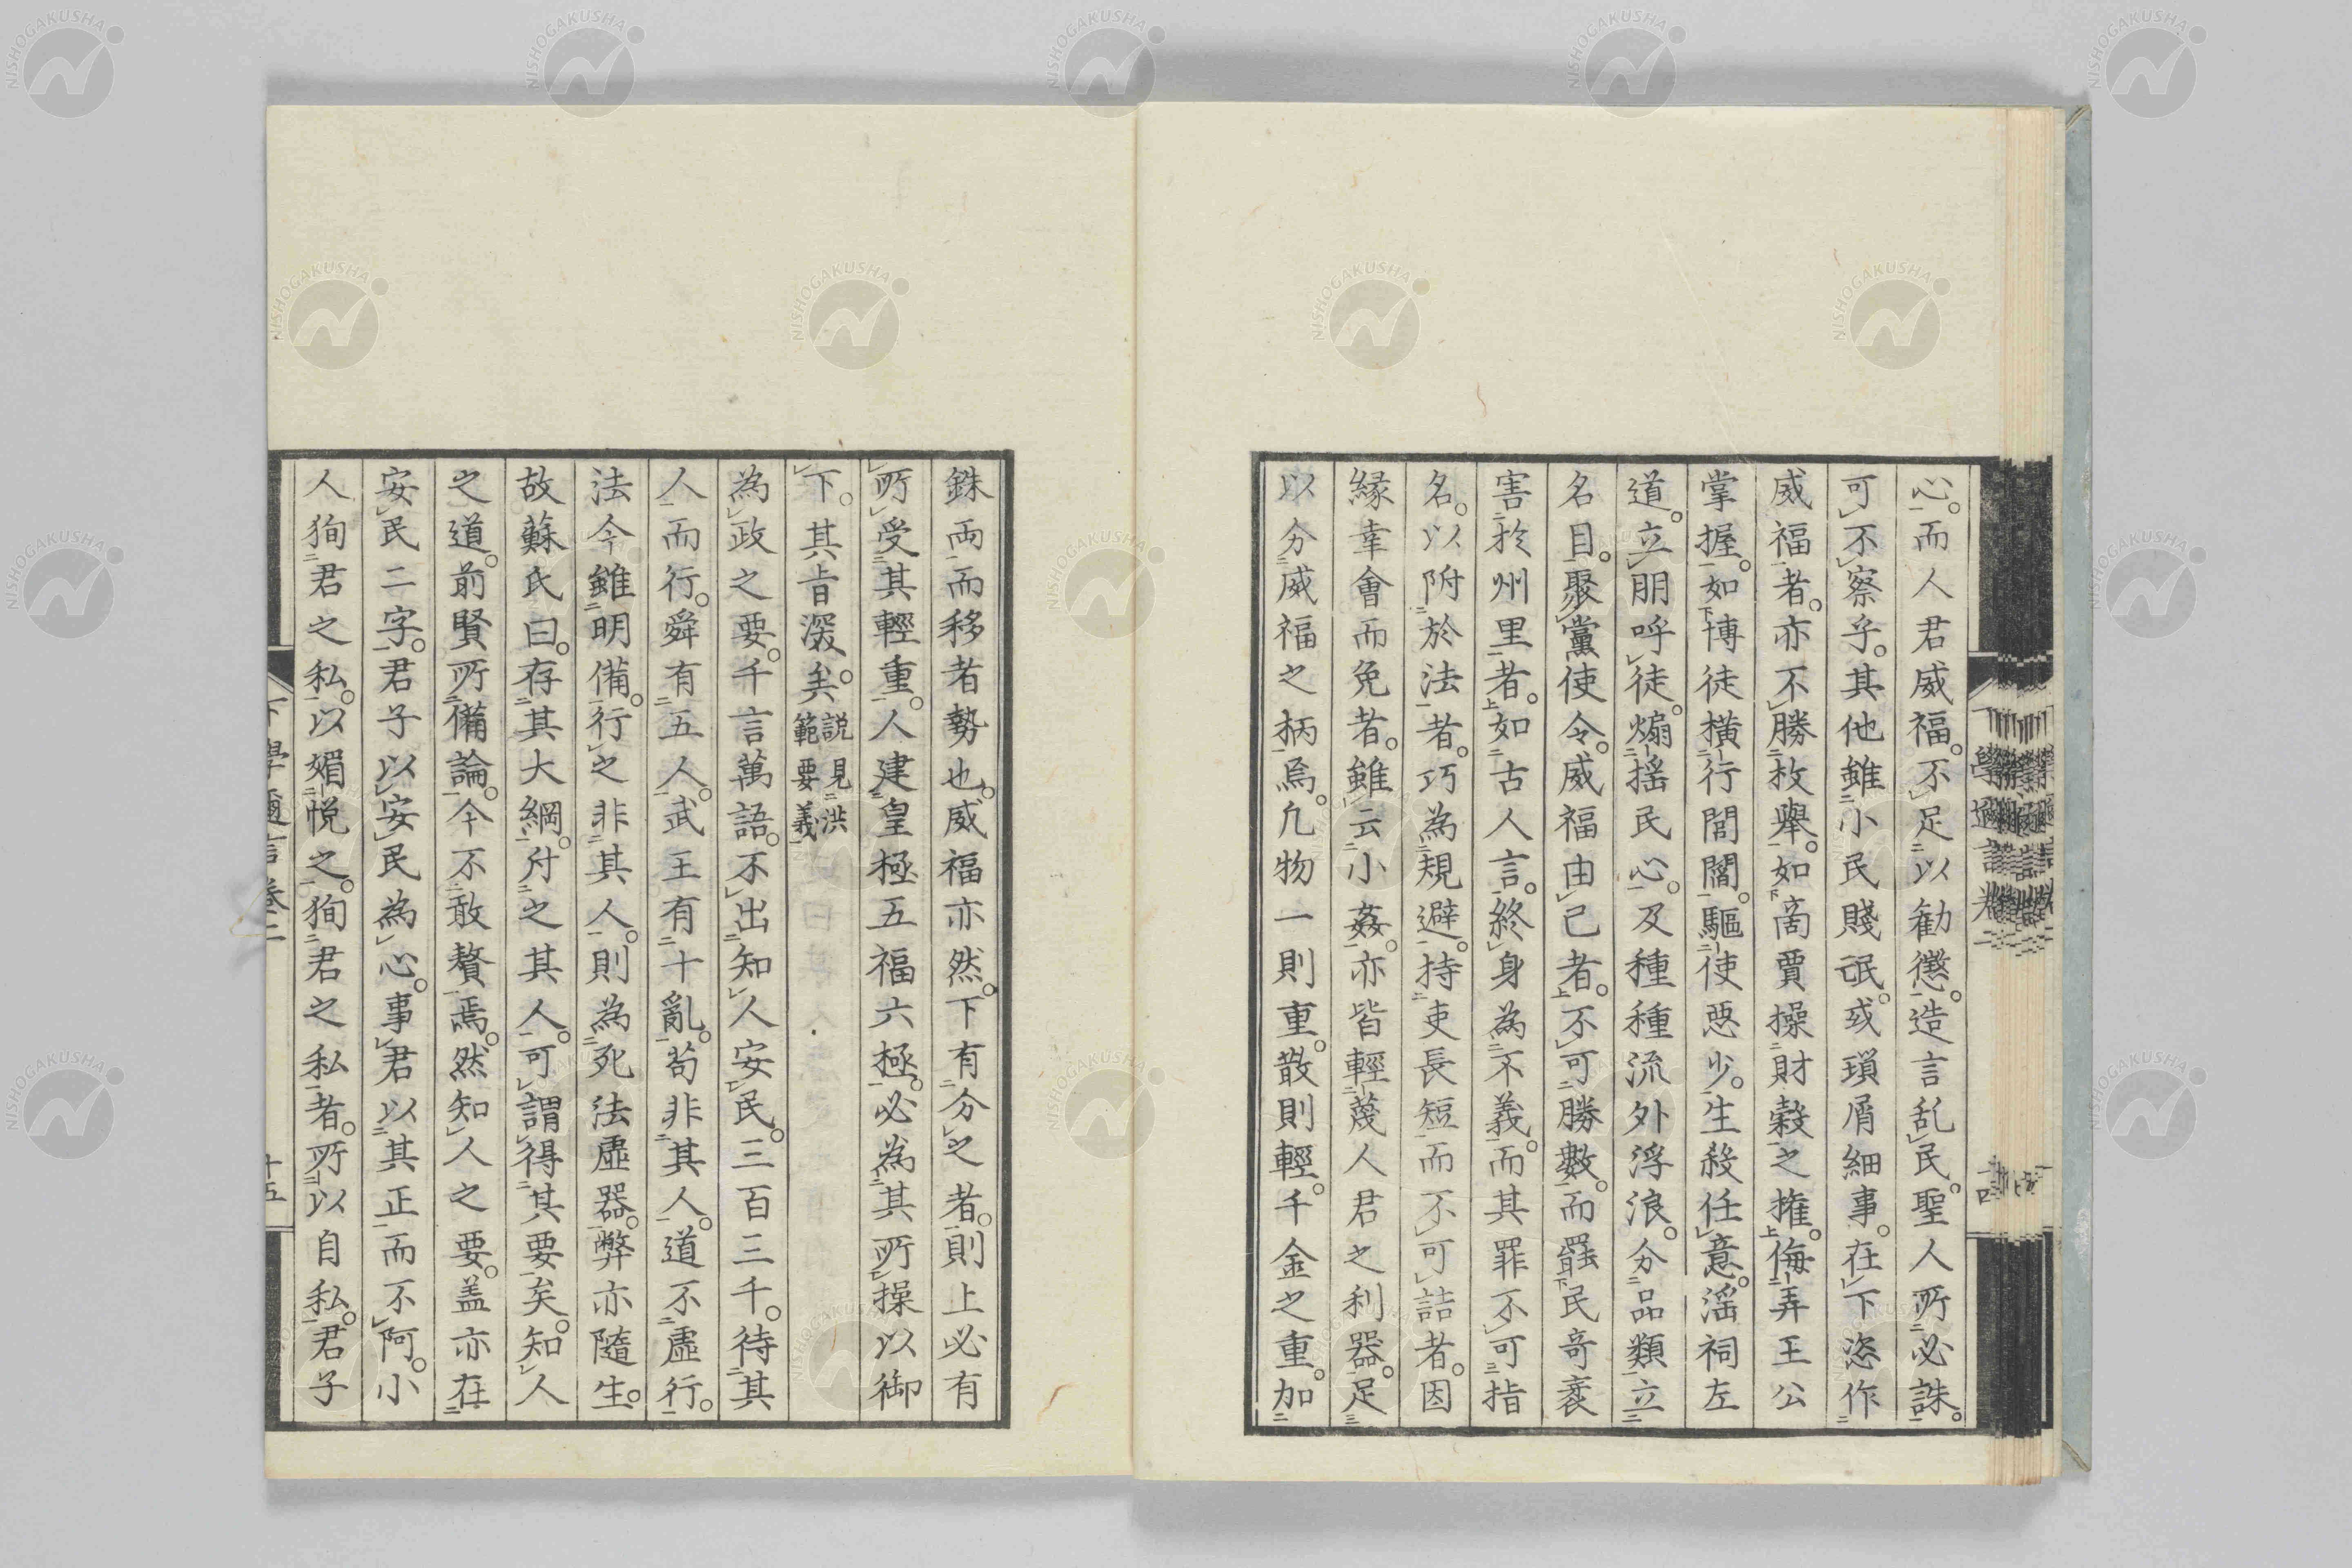 心。而人君威福。不足以勸懲。造言乱民。聖人所必誅。
可不察乎。其他雖小民賤氓。或瑣屑細事。在下恣作
威福者。亦不勝枚舉。如商賈操財穀之搉。侮弄王公
掌握。如博徒横行閭閻。驅使惡少。生殺任意。滛祠左
道。立朋呼徒。煽揺民心。及種種流外浮浪。分品類立
名目。聚黨使令。威福由己者。不可勝數。而罹民竒衺
害於州里者。如古人言。終身為不義。而其罪不可指
名。以附於法者。巧為規避。持吏長短而不可詰者。因
縁幸會而免者。雖云小姦。亦皆輕蔑人君之利器。足
以分威福之柄焉。凢物一則重。散則輕。千金之重。加
銖両而移者勢也。威福亦然。下有分之者。則上必有
所受其輕重。人建皇極五福六極。必為其所操以御
下。其旨深矣。説見洪範要義
為政之要。千言萬語。不出知人安民。三百三千。待其
人而行。舜有五人。武王有十亂。苟非其人。道不虚行。
法令雖明備。行之非其人。則為死法虚器。弊亦隨生。
故蘇氏曰。存其大綱。付之其人。可謂得其要矣。知人
之道。前賢所備論。今不敢贅焉。然知人之要。盖亦在
安民二字。君子以安民為心。事君以其正而不阿。小
人狥君之私。以媚悦之。狥君之私者。所以自私。君子
下學邇言卷二
十五
NISHOGAKUSHA